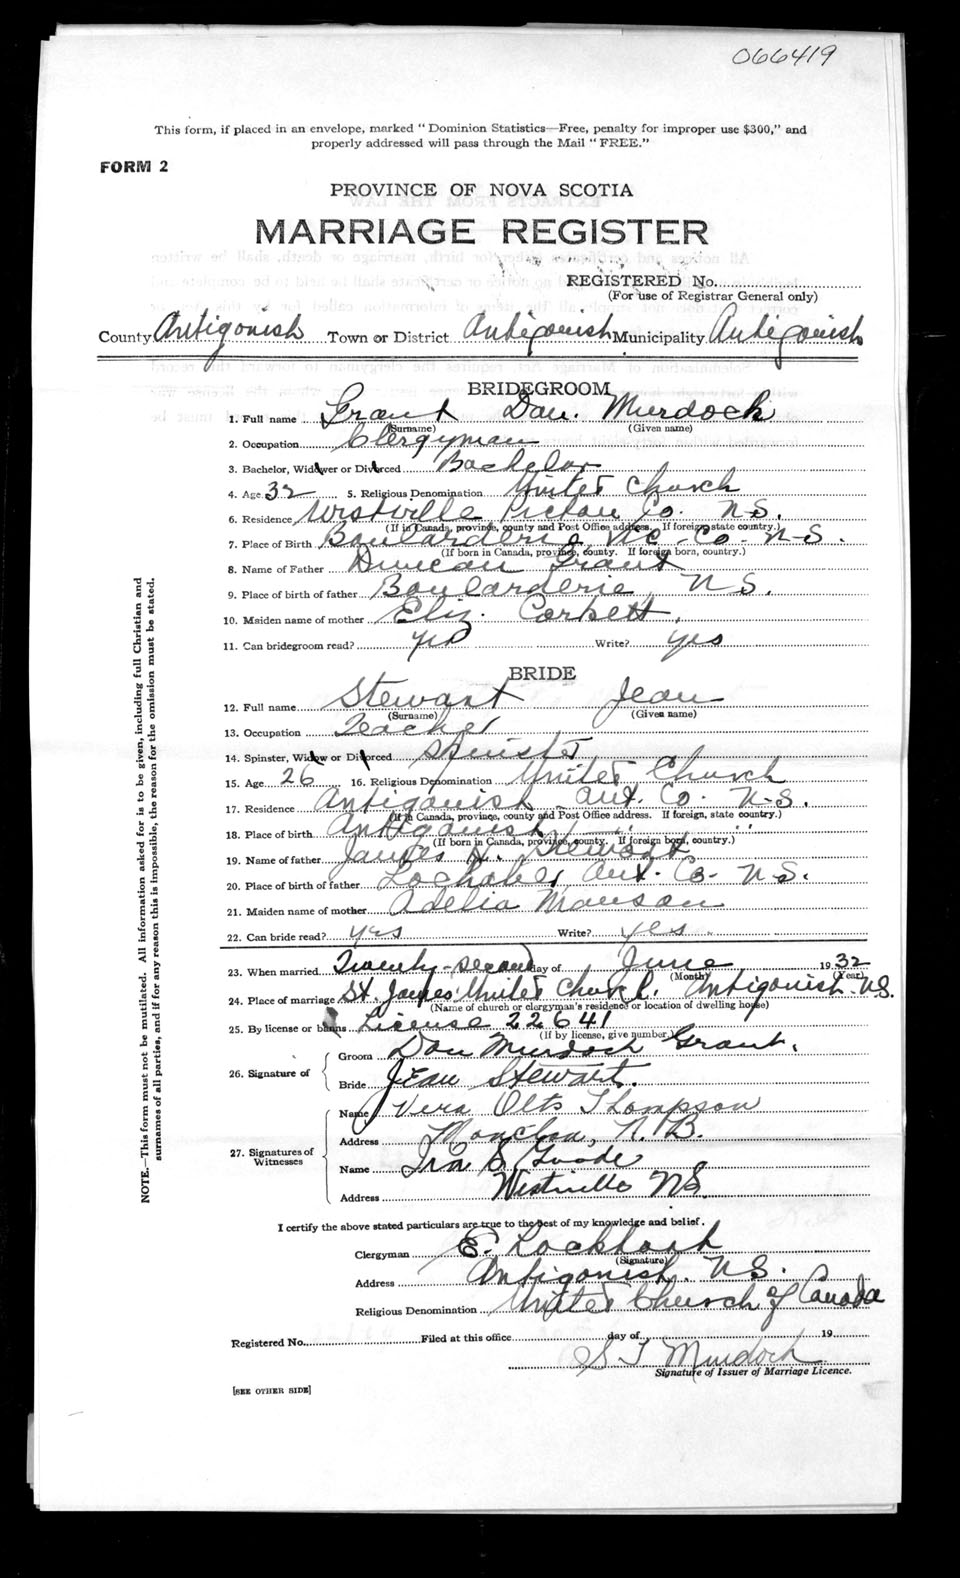 066419
This form, if placed in an envelope, marked "Dominion Statistics—Free, penalty for improper use $300," and
properly addressed will pass through the Mail "FREE."
FORM 2
PROVINCE OF NOVA SCOTIA
MARRIAGE REGISTER
REGISTERED No.
(For use of Registrar General only)
County Antigonish Town or District Antigonish Municipality Antigonish
BRIDEGROOM
1. Full name Grant Dan. Murdock
(Surname) (Given name)
2. Occupation Clergyman
3. Bachelor, Widower or Divorced Bachelor
4. Age 32 5. Religious Denomination United Church
6. Residence Westville Pictou Co. N.S.
(If in Canada, province, county and Post Office address. If foreign, state country.)
7. Place of Birth Boularderie, Vic. Co. N-S.
(If born in Canada, province, county. If foreign born, country.)
8. Name of Father Duncan Grant
9. Place of birth of father Boularderie, N S.
10. Maiden name of mother Eliz. Corbett.
11. Can bridegroom read? yes Write? yes
BRIDE
12. Full name Stewart Jean
(Surname) (Given name)
13. Occupation Teacher
14. Spinster, Widow or Divorced Spinster
15. Age 26 16. Religious Denomination United Church
17. Residence Antigonish Ant. Co. N-S.
(If in Canada, province, county and Post Office address. If foreign, state country.)
18. Place of birth Antigonish — " "
(If born in Canada, province, county. If foreign born, country.)
19. Name of father James H. Stewart
20. Place of birth of father Lochaber, Ant. Co. N.S.
21. Maiden name of mother Adelia Manson
22. Can bride read? yes Write? yes.
23. When married Twenty-second day of June 1932
(Month) (Year)
24. Place of marriage St. James' United Church, Antigonish N.S.
(Name of church or clergyman's residence or location of dwelling house)
25. By license or banns License 22641
(If by license, give number)
26. Signature of
Groom Dan Murdoch Grant.
Bride Jean Stewart.
27. Signatures of Witnesses
Name Vera Olts Thompson
Address Moncton, N. B.
Name Ira S Goode
Address Westville NS.
I certify the above stated particulars are true to the best of my knowledge and belief.
Clergyman E. Lockhart
(Signature)
Address Antigonish, N.S.
Religious Denomination United Church of Canada
Registered No. Filed at this office day of 19
S T Murdoch
Signature of Issuer of Marriage Licence.
[SEE OTHER SIDE]
NOTE.—This form must not be mutilated. All information asked for is to be given, including full Christian and
surnames of all parties, and if for any reason this is impossible, the reason for the omission must be stated.